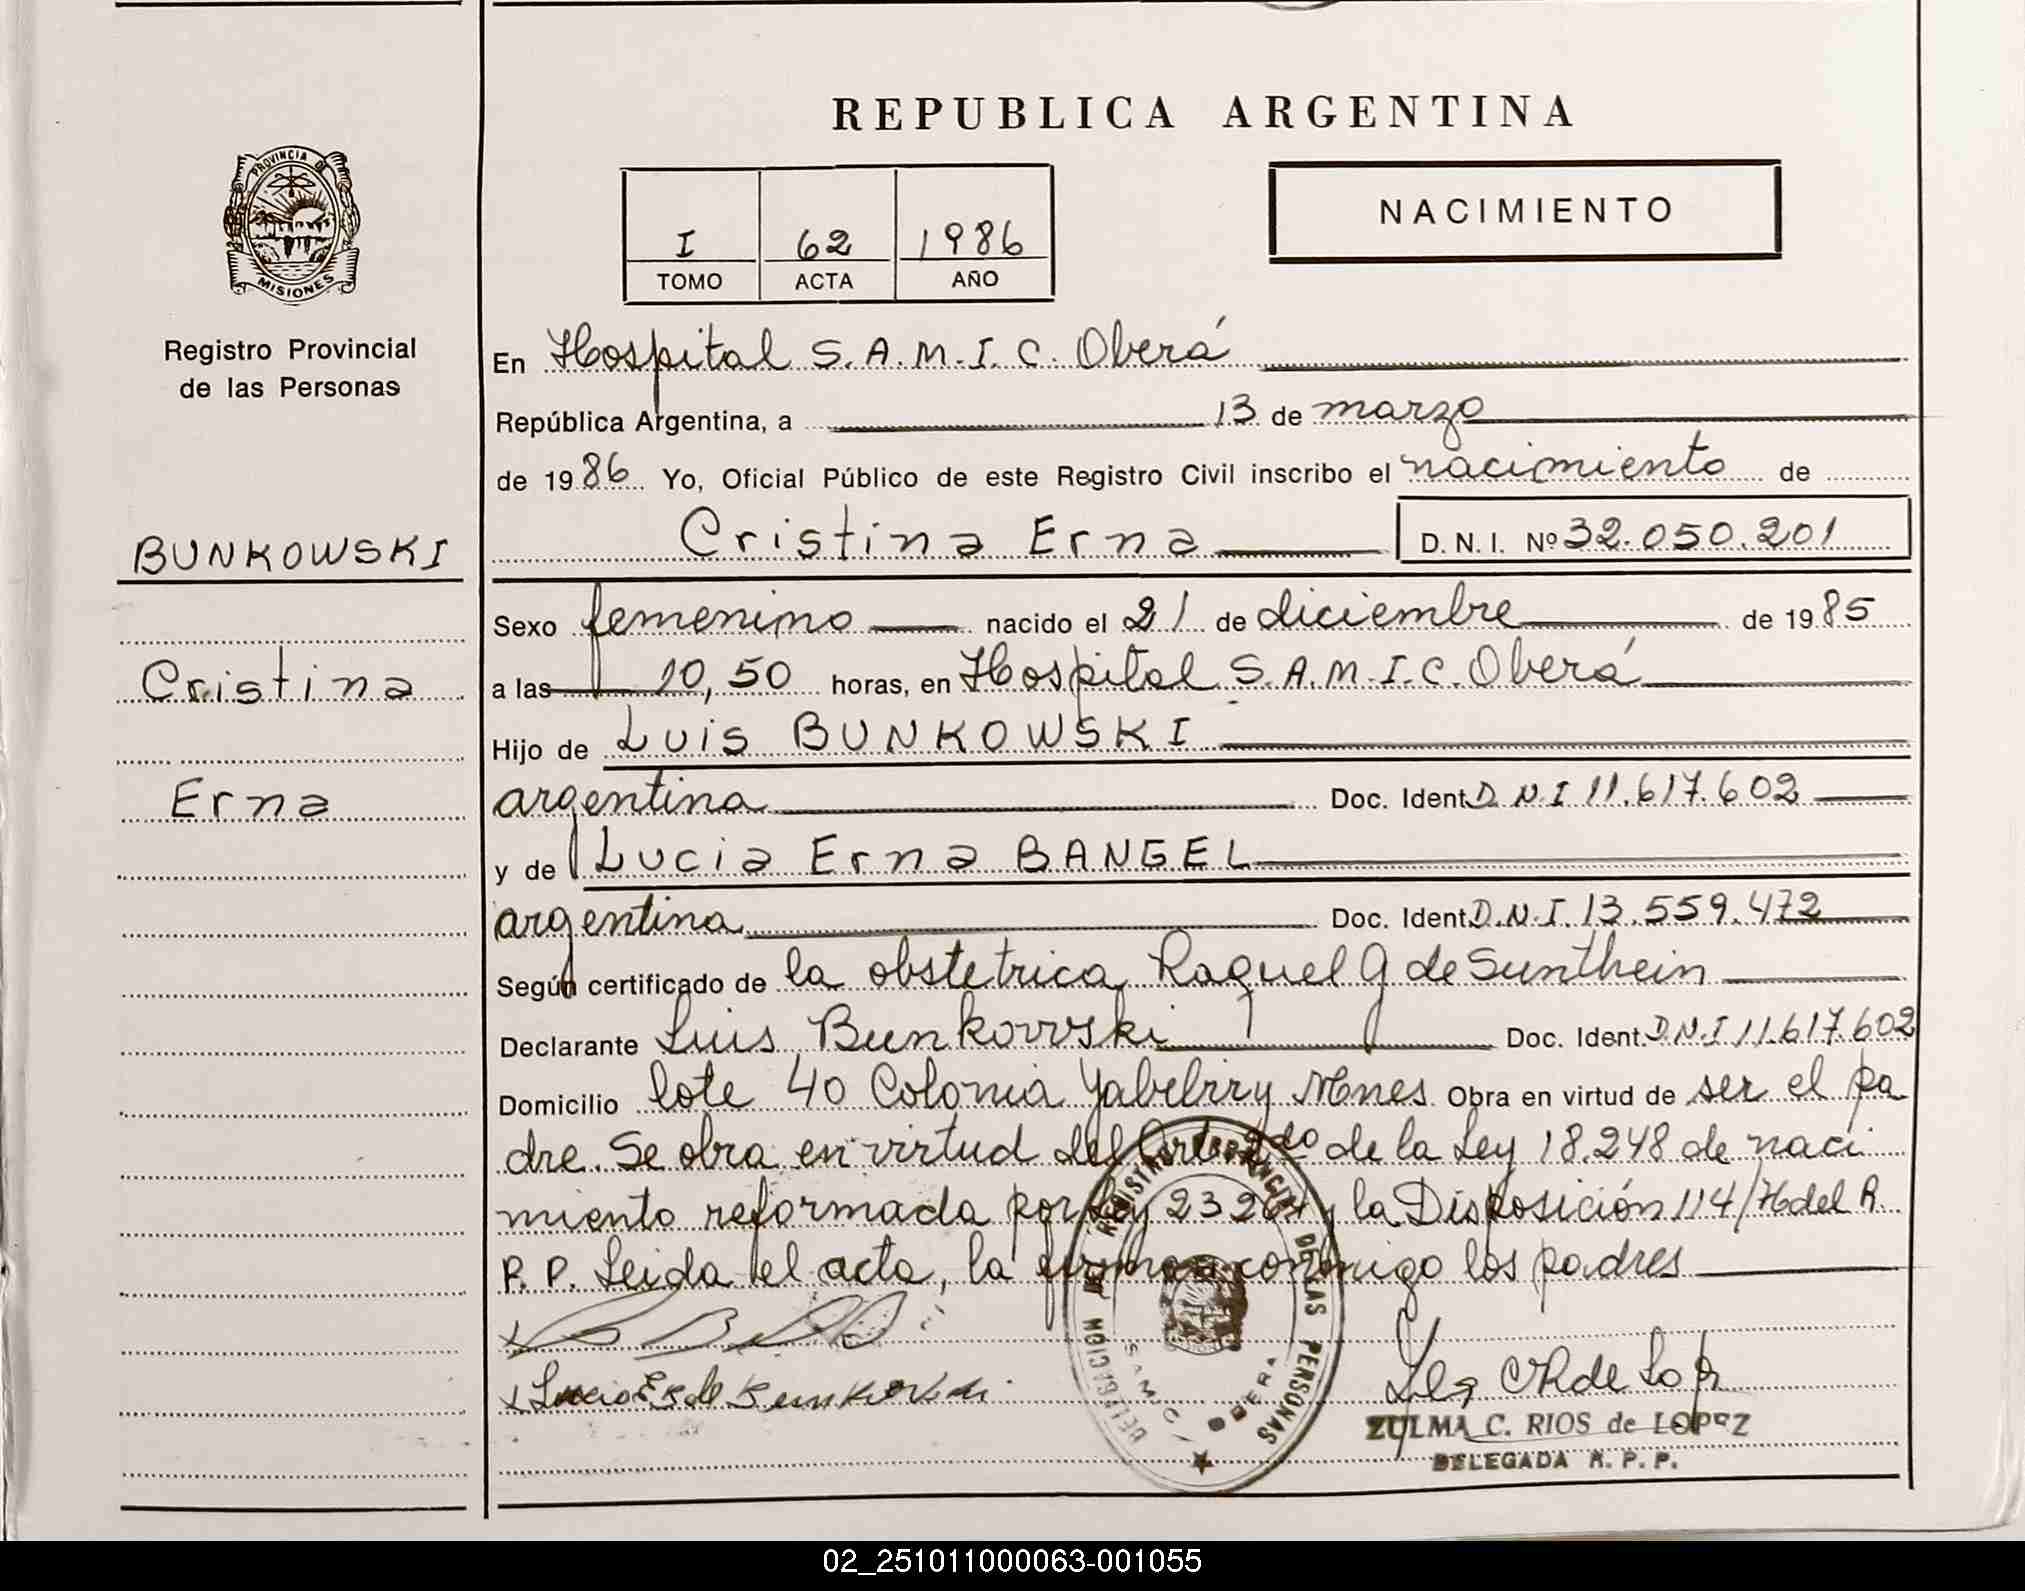 REPUBLICA ARGENTINA
PROVINCIA DE MISIONES
Registro Provincial
de las Personas
I 62 1986
TOMO ACTA AÑO
NACIMIENTO
BUNKOWSKI
Cristina
Erna
En Hospital S.A.M.I.C. Oberá
República Argentina, a 13 de marzo
de 1986 Yo, Oficial Público de este Registro Civil inscribo el nacimiento de
Cristina Erna D.N.I. Nº 32.050.201
Sexo femenino nacido el 21 de diciembre de 1985
a las 10,50 horas, en Hospital S.A.M.I.C. Oberá
Hijo de Luis BUNKOWSKI
argentina Doc. Ident. D.N.I 11.617.602
y de Lucia Erna BANGEL
argentina Doc. Ident. D.N.I. 13.559.472
Según certificado de la obstetrica Raquel G de Sunthein
Declarante Luis Bunkowski Doc. Ident. D.N.I 11.617.602
Domicilio lote 40 Colonia Yabebiry Mnes Obra en virtud de ser el pa
dre. Se obra en virtud del Art. 2do de la Ley 18.248 de naci
miento reformada por Ley 23264 y la Disposición 114/76 del R.
P. P. Leida el acta, la firman conmigo los padres
REGISTRO PROVINCIAL DE LAS PERSONAS
DELEGACION
SAMIC OBERA
ZULMA C. RIOS de LOPEZ
DELEGADA R. P. P.
02_251011000063-001055